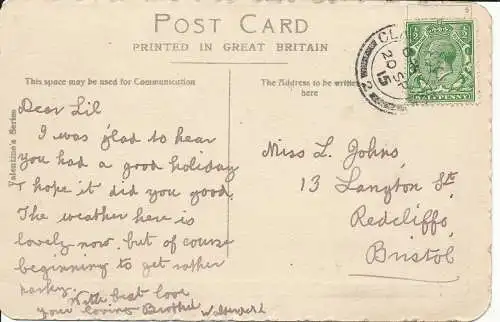 POST CARD
PRINTED IN GREAT BRITAIN
This space may be used for Communication
The Address to be written
here
Valentine's Series
Dear Lil
I was glad to hear
you had a good holiday
& hope it did you good.
The weather here is
lovely now. but of course
beginning to get rather
parky.
With best love
your loving Brother
Miss L. Johns,
13 Langton St
Redcliffe
Bristol
20 SP
15
2
HALFPENNY